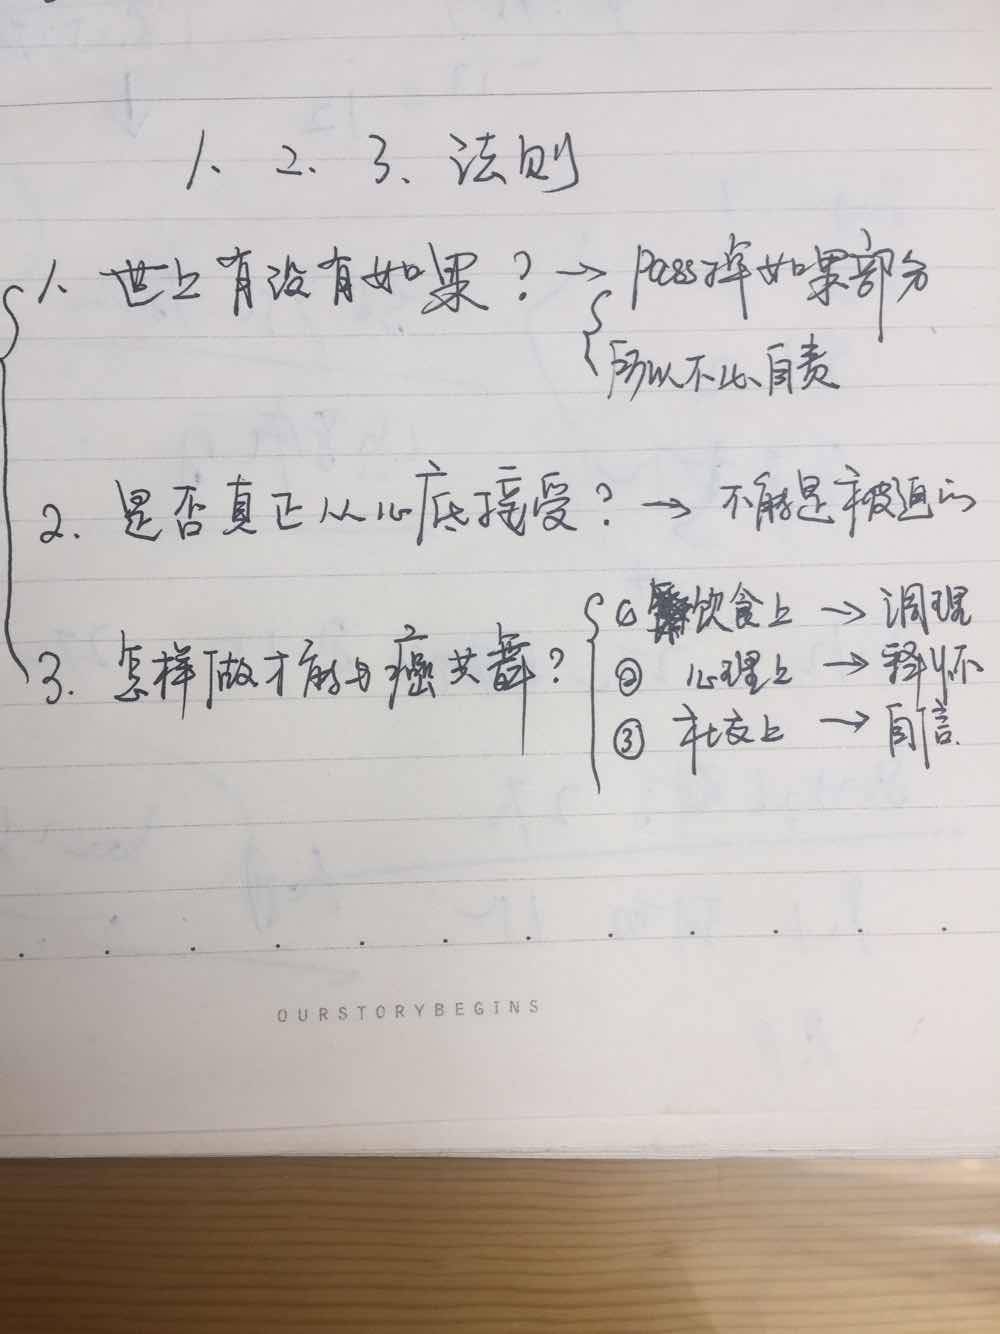 1. 2. 3. 法则
1. 世上有没有如果？→ pass掉如果部分
所以不必自责
2. 是否真正从心底接受？→ 不能是被迫的
3. 怎样做才能与癌共舞？
① 饮食上 → 调理
② 心理上 → 释怀
③ 社交上 → 自信.
OURSTORYBEGINS